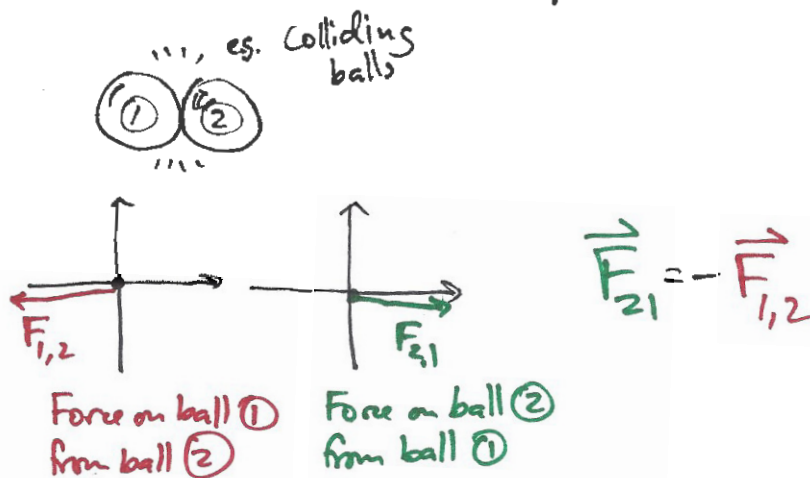 eg. Colliding
balls
1 2
F₁,₂
F₂,₁
F₂₁ = - F₁,₂
Force on ball ①
from ball ②
Force on ball ②
from ball ①